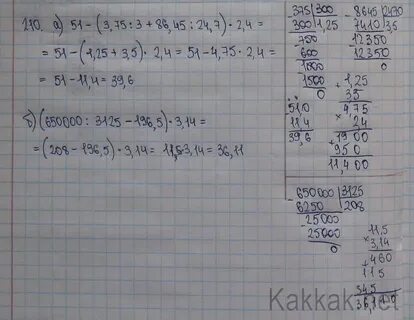 210. а) 51-(3,75:3+86,45:24,7)·2,4=
=51-(1,25+3,5)·2,4=51-4,75·2,4=
=51-11,4=39,6
б) (650000:3125-196,5)·3,14=
=(208-196,5)·3,14=11,5·3,14=36,11
-375|300
300|1,25
-750
600
1500
1500
0
-8645|2470
7410|3,5
12350
12350
0
+1,25
3,5
4,75
×2,4
+1900
950
11,400
510
114
39,6
-650000|3125
6250|208
-25000
25000
0
11,5
×3,14
+460
115
345
36,110
Kakkak.net